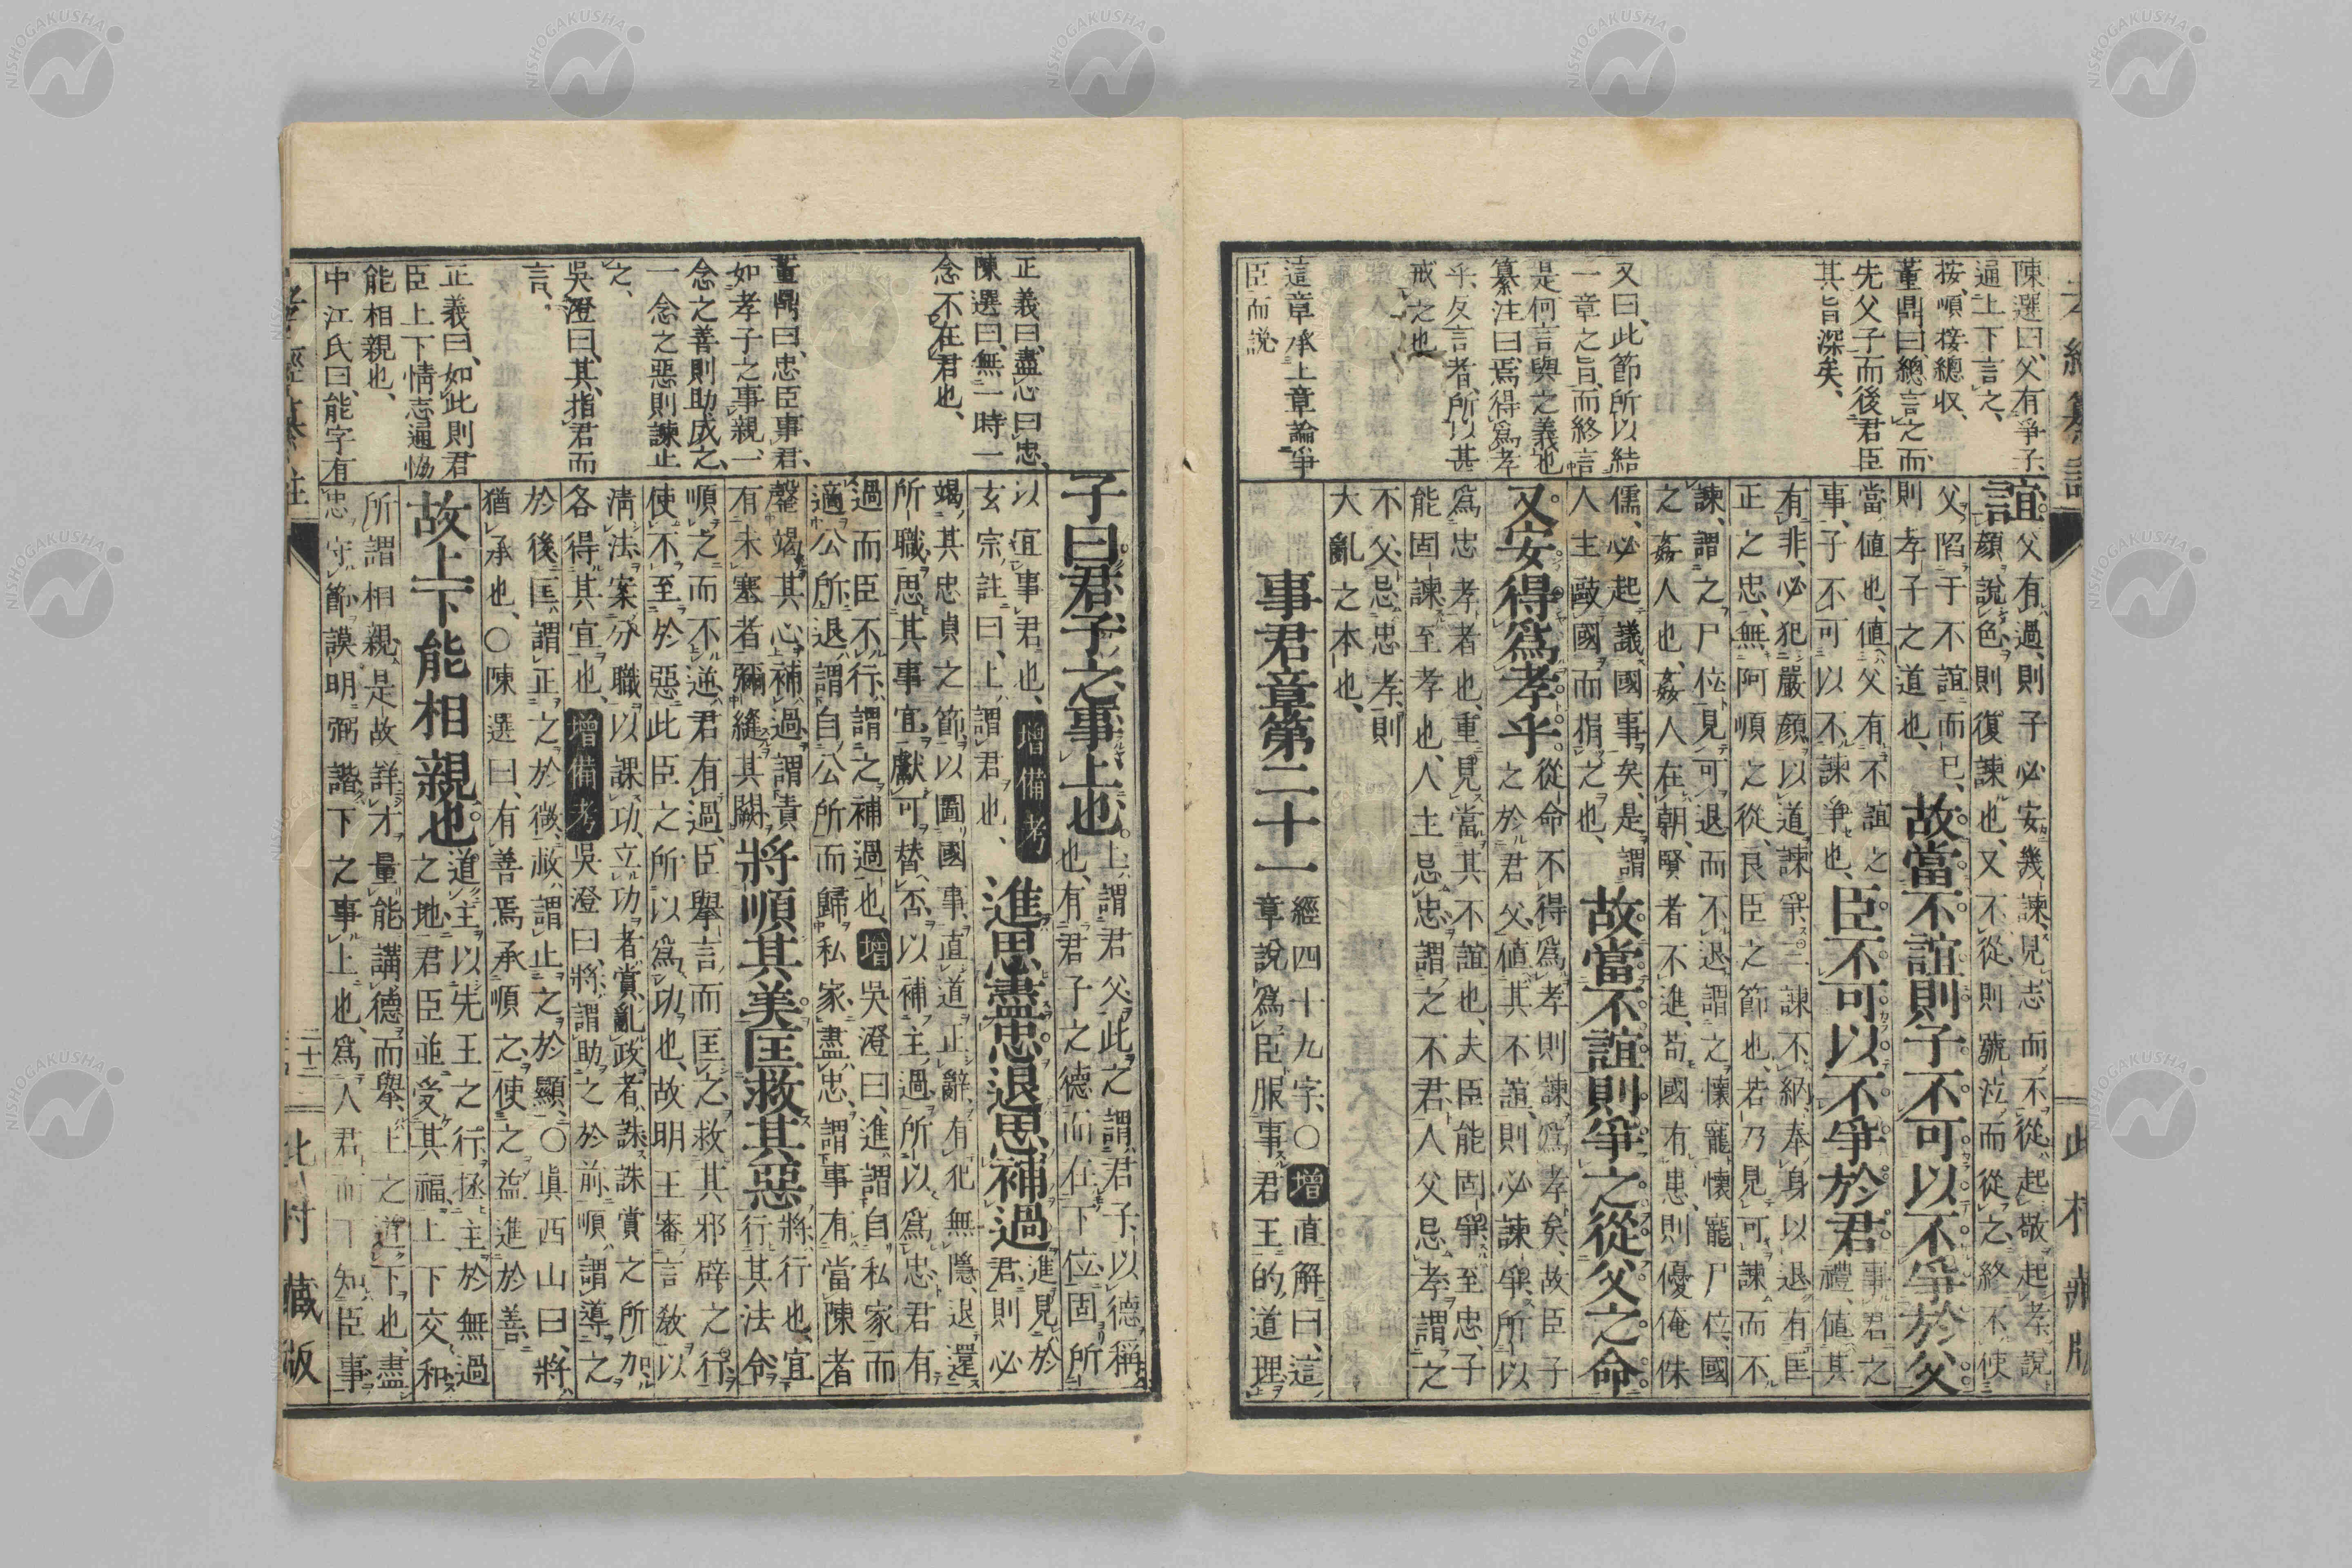 陳選曰、父有爭子、
通上下言之、
按、順接總収、
董鼎曰、總言之而
先父子而後君臣
其旨深矣、
又曰、此節所以結
一章之旨、而終言
是何言與之義也
纂注曰、焉得爲孝
乎、反言者、所以甚
戒之也
這章承上章論爭
臣而說
誼父有過、則子必安幾諫、見志而不從、起敬起孝、說
顏說色、則復諫也、又不從、則號泣而從之、終不使
父陷于不誼而已、故當不誼則子不可以不爭於父
則孝子之道也、
當値也、値父有不誼之
事、子不可以不諫爭也、臣不可以不爭於君事君之
禮、値其
有非、必犯嚴顏、以道諫爭、三諫不納、奉身以退、有匡
正之忠、無阿順之從、良臣之節也、若乃見可諫而不
諫、謂之尸位、見可退而不退、謂之懷寵、懷寵尸位、國
之姦人也、姦人在朝、賢者不進、苟國有患、則優俺侏
儒、必起議國事矣、是謂
人主敺國而捐之也、故當不誼則爭之從父之命
又安得爲孝乎從命不得爲孝、則諫爲孝矣、故臣子
之於君父、値其不誼、則必諫爭、所以
爲忠孝者也、重見當其不誼也、夫臣能固爭至忠、子
能固諫至孝也、人主忌忠、謂之不君、人父忌孝、謂之
不父、忌忠孝、則
大亂之本也、
事君章第二十一經四十九字、〇增直解曰、這
章說爲臣服事君王的道理
此村藏版
正義曰、盡心曰忠、
陳選曰、無一時一
念不在君也、
董鼎曰、忠臣事君、
如孝子之事親、一
念之善則助成之、
一念之惡則諫止
之、
吳澄曰、其、指君而
言、
正義曰、如此則君
臣上下情志通協
能相親也、
中江氏曰、能字有
子曰君子之事上也上謂君父、此之謂君子、以德稱
也、有君子之德而在下位、固所
以宜事君也、增備考
玄宗註曰、上謂君也、進思盡忠退思補過進見於
君、則必
竭其忠貞之節、以圖國事、直道正辭、有犯無隱、退還
所職、思其事宜、獻可替否、以補主過、所以爲忠、君有
過而臣不行、謂之補過也、增吳澄曰、進、謂自私家而
適公所、退、謂自公所而歸私家、盡忠、謂事有當陳者
罄竭其心、補過、謂責
有未塞者彌縫其闕、將順其美匡救其惡將、行也、宜
行其法令
順之而不逆、君有過、臣擧言而匡之、救其邪辟之行、
使不至於惡、此臣之所以爲功也、故明王審言敎以
淸法、案分職以課功、立功者賞、亂政者誅、誅賞之所加
各得其宜也、增備考吳澄曰、將、謂助之於前、順、謂導之
於後、匡、謂正之於微、救、謂止之於顯、〇眞西山曰、將
猶承也、〇陳選曰、有善焉承順之、使之益進於善、
故上下能相親也道主以先王之行、拯主於無過
之地、君臣並受其福、上下交和
所謂相親、是故詳才量能、講德而擧、上之道下也、盡
忠守節、謨明弼諧、下之事上也、爲人君而下知臣事
孝經纂註
此村藏版